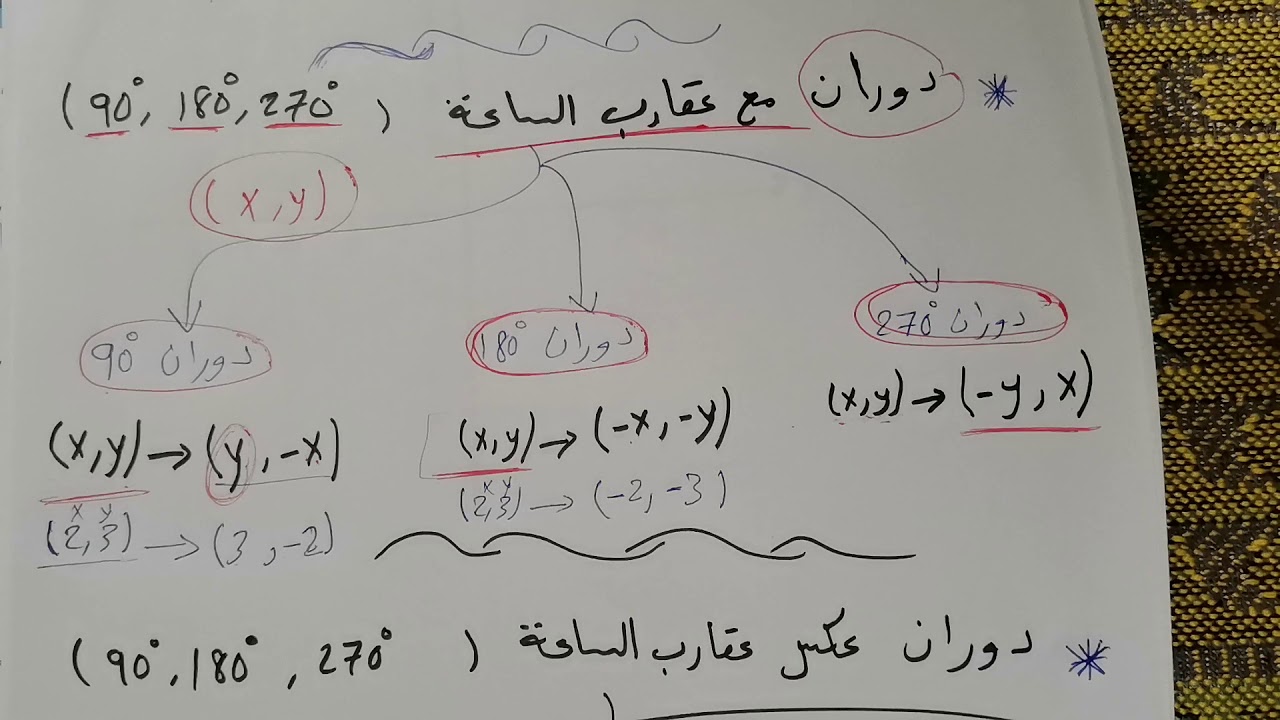 * دوران مع عقارب الساعة (90°, 180°, 270°)
(x, y)
دوران 90°
دوران 180°
دوران 270°
(x,y) → (y, -x)
(x,y) → (-x, -y)
(x,y) → (-y, x)
x y
(2,3) → (3, -2)
x y
(2,3) → (-2, -3)
* دوران عكس عقارب الساعة (90°, 180°, 270°)